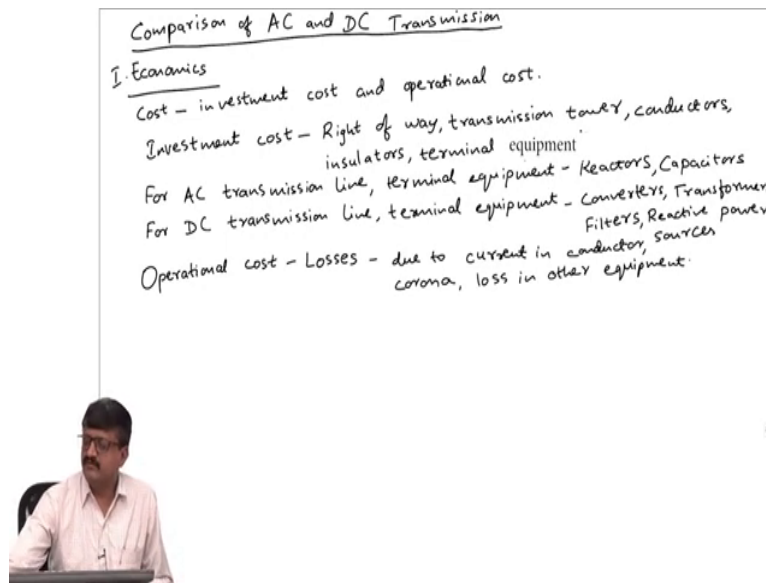 Comparison of AC and DC Transmission
I. Economics
Cost – investment cost and operational cost.
Investment cost – Right of way, transmission tower, conductors,
insulators, terminal equipment
For AC transmission line, terminal equipment – Reactors, Capacitors
For DC transmission line, terminal equipment – Converters, Transformer
Filters, Reactive power
sources
Operational cost – Losses – due to current in conductor,
corona, loss in other equipment.